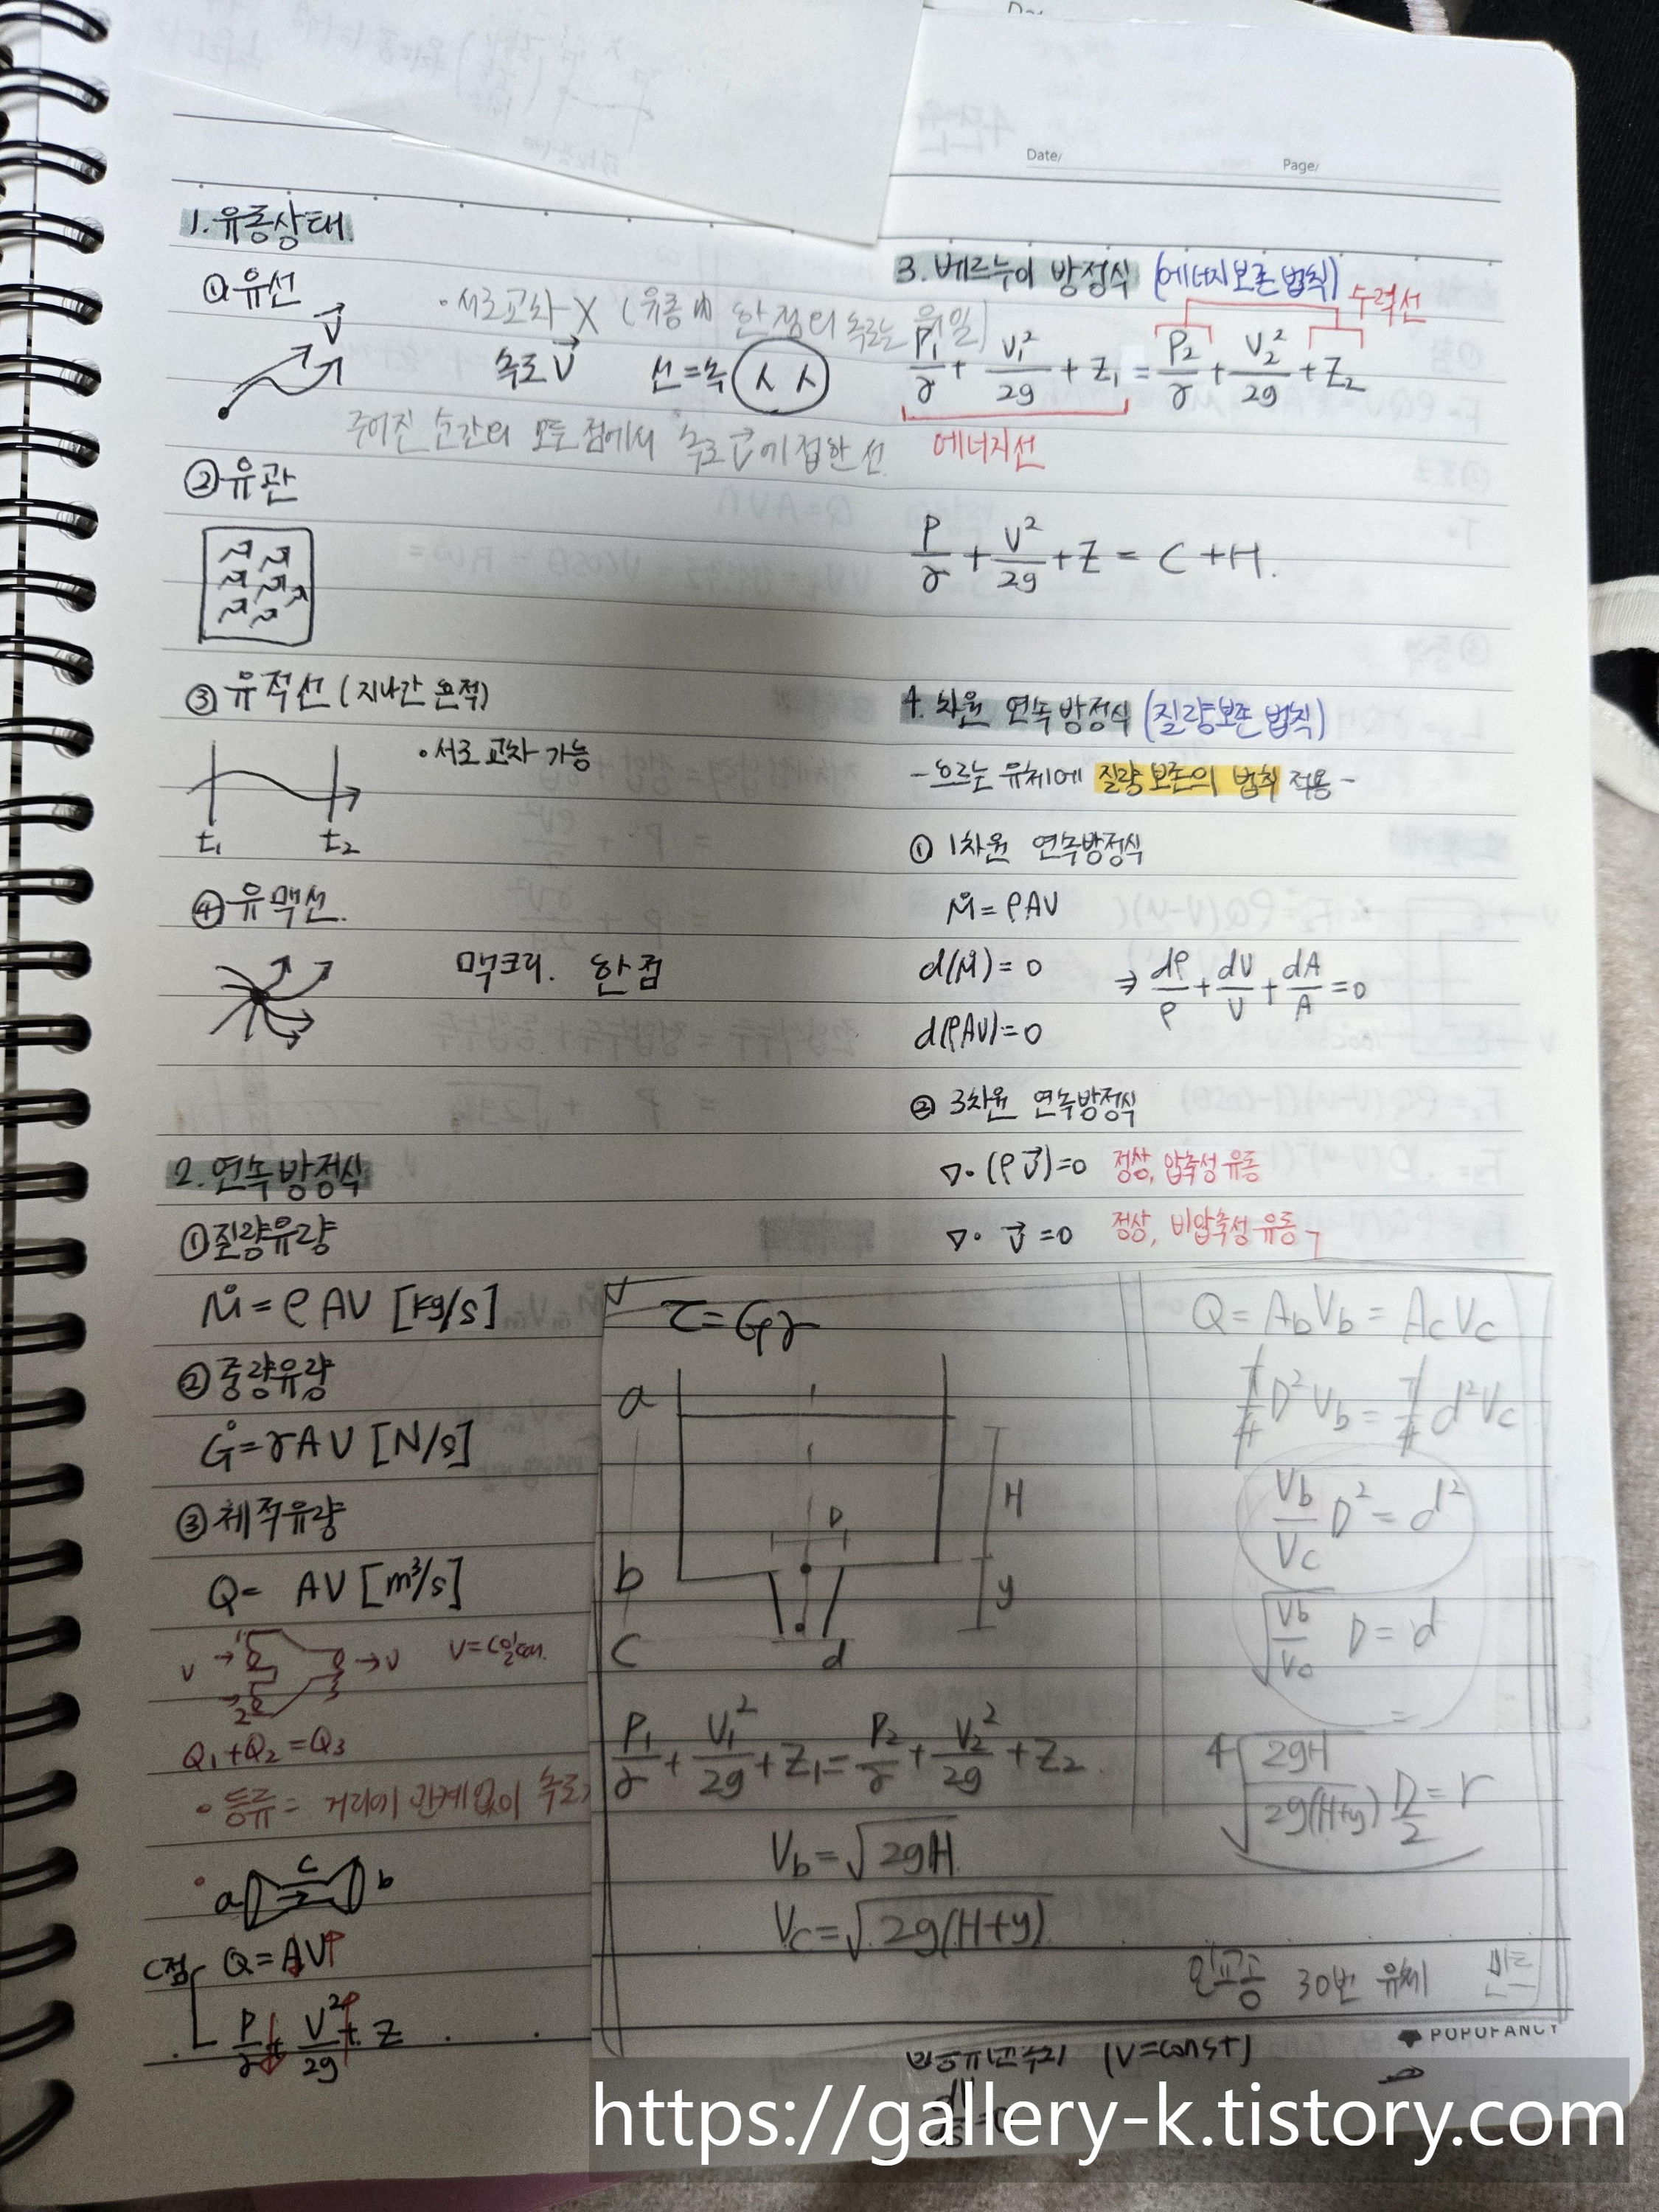 Date/
Page/
1. 유동상태
① 유선
V
· 서로교차 X (유동내 한점의 속도는 유일)
속도 V 선=속
주어진 순간의 모든 점에서 속도 V에 접한 선
② 유관
③ 유적선 (지나간 흔적)
· 서로 교차 가능
t₁ t₂
④ 유맥선.
맥크리. 한점
2. 연속방정식
① 질량유량
Ṁ = ρAV [kg/s]
② 중량유량
Ġ = γAV [N/s]
③ 체적유량
Q = AV [m³/s]
V → 1 → V
2 3
Q₁+Q₂=Q₃
· 등류 = 거리에 관계없이 속도
a c b
C점 Q = AV↑
P/γ↓ + V²/2g↑ + Z
3. 베르누이 방정식 (에너지보존법칙)
수력선
P₁/γ + V₁²/2g + Z₁ = P₂/γ + V₂²/2g + Z₂
에너지선
P/γ + V²/2g + Z = C + H.
4. 차원 연속방정식 (질량보존 법칙)
- 흐르는 유체에 질량보존의 법칙 적용 -
① 1차원 연속방정식
Ṁ = ρAV
d(Ṁ) = 0 ⇒ dρ/ρ + dV/V + dA/A = 0
d(ρAV) = 0
② 3차원 연속방정식
∇·(ρV) = 0 정상, 압축성 유동
∇·V = 0 정상, 비압축성 유동
τ = Gγ
a
H
D
b
y
c
d
P₁/γ + V₁²/2g + Z₁ = P₂/γ + V₂²/2g + Z₂
V_b = √2gH
V_c = √2g(H+y)
Q = A_bV_b = A_cV_c
π/4 D²V_b = π/4 d²V_c
V_b/V_c D² = d²
√V_b/V_c D = d
=
4√2gH/2g(H+y) D/2 = r
30번 유체
POPOFANCY
(V=const)
https://gallery-k.tistory.com